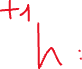 +1
h: